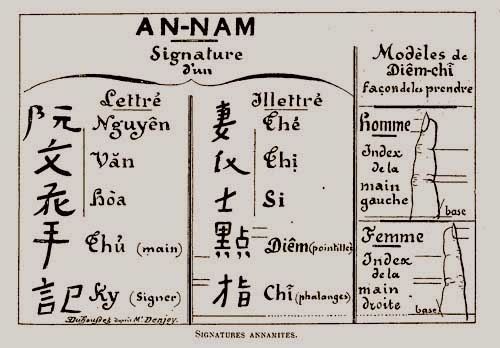 AN-NAM
Signature
d'un
Lettré
阮 Nguyên
文 Văn
Hòa
手 Thủ (main)
記 Ky (Signer)
Illettré
妻 Thé
Thị
士 Si
點 Diêm (pointiller)
指 Chỉ (phalanges)
Modèles de
Diêm-chỉ
façon de les prendre
Homme
Index
de la
main
gauche
base
Femme
Index
de la
main
droite
base
Duhousset d'après Mr Denjoy.
SIGNATURES ANNAMITES.